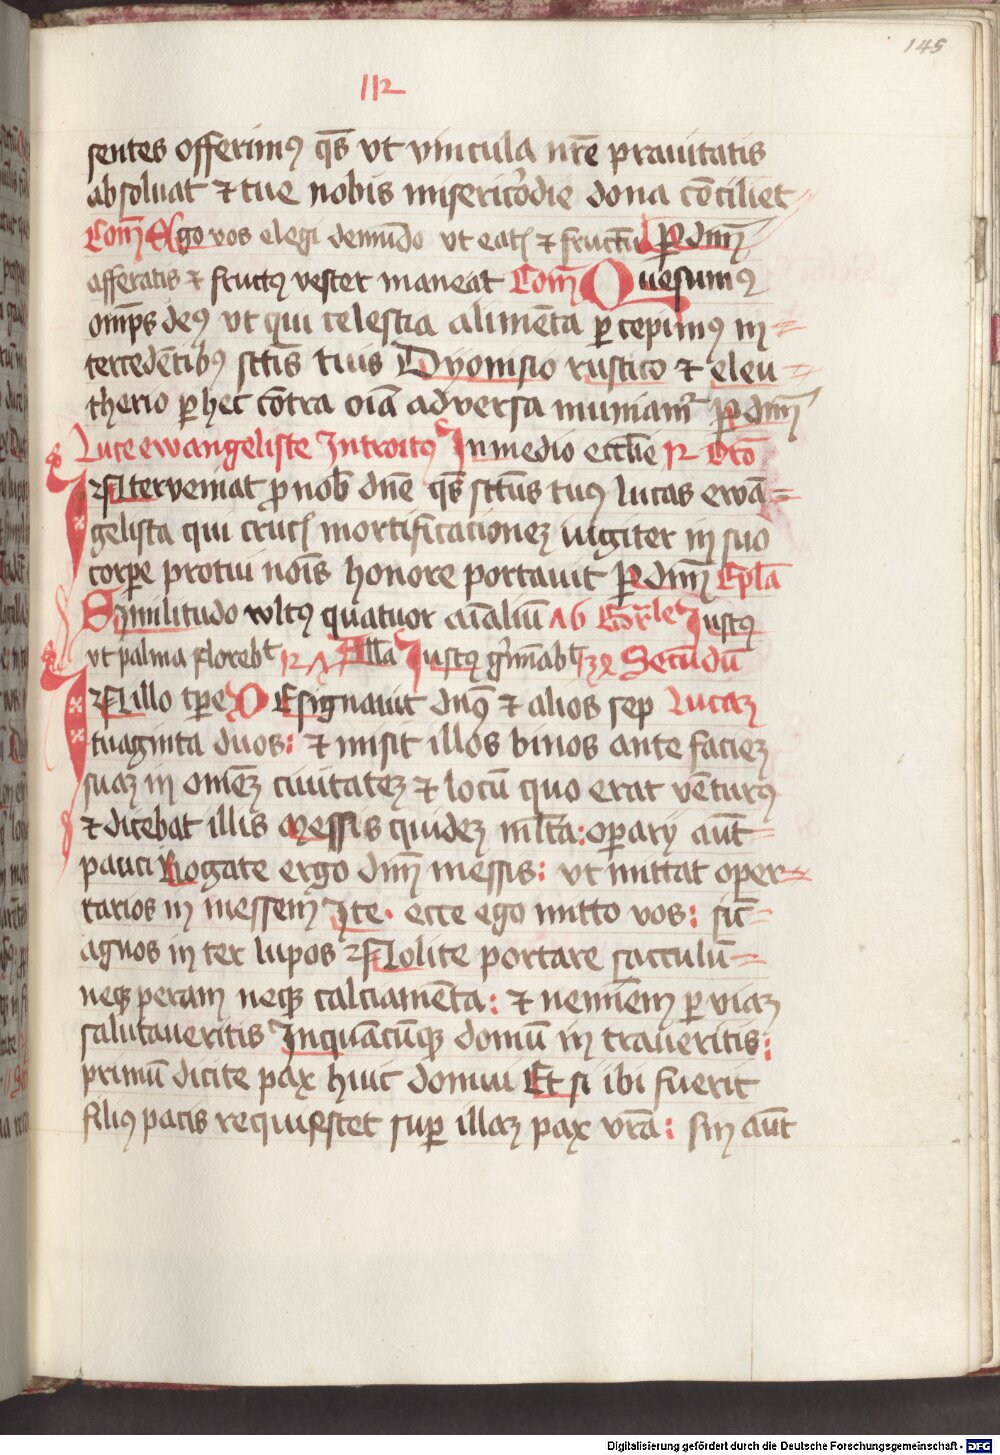 145
112
sentes offerimꝰ q̄s vt vincula nr̄e prauitatis
absoluat ⁊ tue nobis misericordie dona cōciliet
Com̄ Ego vos elegi de mūdo vt eatꝭ ⁊ fructū P̱ dn̄m
afferatis ⁊ fructꝰ vester maneat Com̄ Quesumꝰ
om̄ps deꝰ vt qui celestia alimēta ꝑcepimꝰ in
tercedētibꝰ sc̄tis tuis Dyonisio rustico ⁊ eleu
therio ꝑ hec cōtra oīa adversa muniamr̄ P̱ dn̄m
Luce ewangeliste Introitꝰ In medio ecctīe ꝶ Oro
INterveniat ꝓ nob̄ dn̄e q̄s sc̄tus tuꝰ lucas ewā
gelista qui crucꝭ mortificationeꝫ iugiter in suo
corꝑe protui nōis honore portauit P̱ dn̄m Epl̄a
Similitudo vultꝰ quatuor aīaliū Ab Gr̄le Iustꝰ
vt palma florebt̄ All̄a Iustꝰ ḡminabt̄ Secūdū
IN illo tꝑe DEsignauit dn̄s ⁊ alios sep Lucaꝫ
tuaginta duos: ⁊ misit illos binos ante facieꝫ
suaꝫ in omēꝫ ciuitateꝫ ⁊ locū quo erat vēturꝰ
⁊ dicebat illis Messis quideꝫ ml̄ta: operarij aūt
pauci Rogate ergo dn̄m messis: vt mittat oper
tarios in messem Ite. ecce ego mitto vos: sic̄
agnos in ter lupos Nolite portare sacculū
neqꝫ peram neqꝫ calciamēta: ⁊ neminem ꝑ viaꝫ
salutaueritis Inquācūqꝫ domū in traueritis:
primū dicite pax huic domui Et si ibi fuerit
filiꝰ pacis requiescet suꝑ illaꝫ pax vr̄a: sin aūt
Digitalisierung gefördert durch die Deutsche Forschungsgemeinschaft - DFG